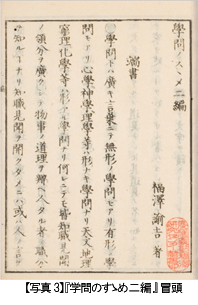 學問ノスヽメ二編
福澤諭吉著
端書
學問トハ廣キ言葉ニテ無形ノ學問モアリ有形ノ學
問モアリ心學神學理學等ハ形ナキ學問ナリ天文地理
窮理化學等ハ形アル學問ナリ何レニテモ皆知識見聞
ノ領分ヲ廣クシテ物事ノ道理ヲ辨ヘ人タル者ノ職分
ヲ知ルヿナリ知識見聞ヲ開クタメニハ或ハ人ノ言ヲ
【写真3】『学問のすゝめ二編』 冒頭